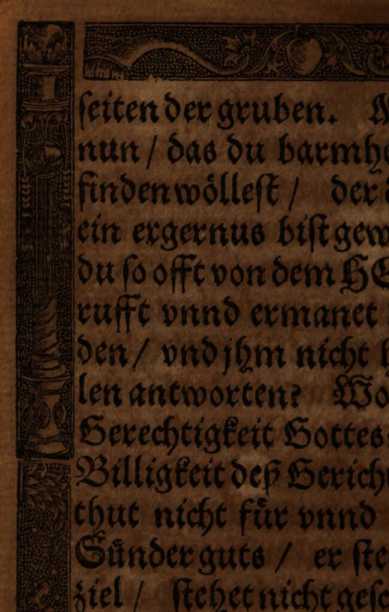 seiten der gruben.
nun / das du
finden wöllest / der
ein ergernus bist
du so offt von dem
rufft vnnd ermanet
den / vnd jhm nicht
len antworten?
Gerechtigkeit Gottes
Billigkeit deß
thut nicht für vnnd
Sünder guts / er
ziel / stehet nicht